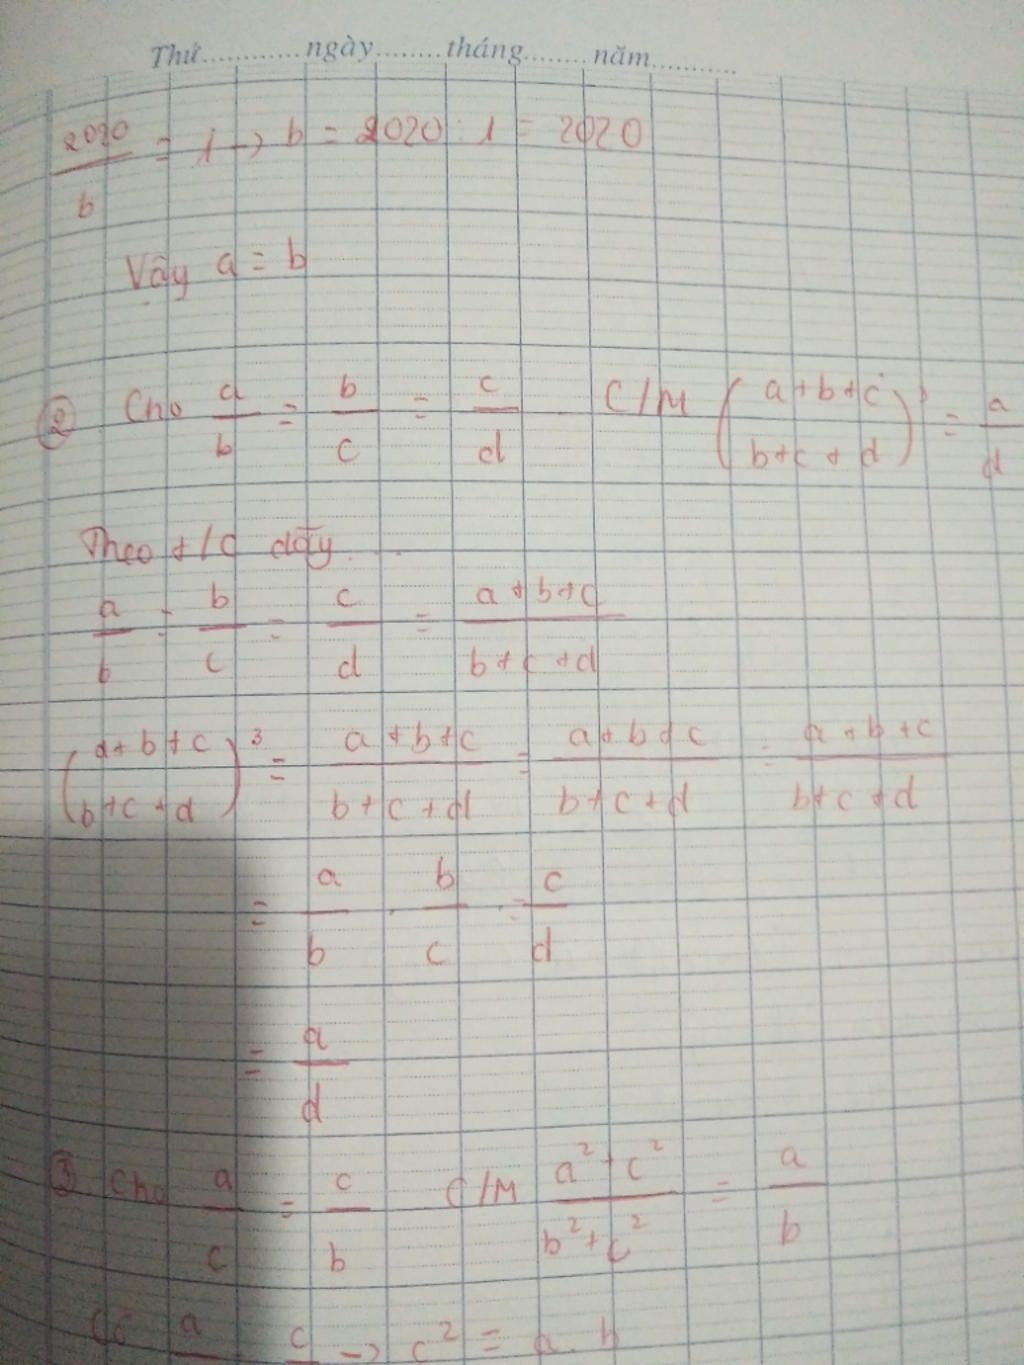 Thứ............ngày........tháng........năm...........
2020/b = 1 → b = 2020 : 1 = 2020
Vậy a = b
② Cho a/b = b/c = c/d C/M ((a+b+c)/(b+c+d))³ = a/d
Theo t/c dãy...
a/b = b/c = c/d = (a+b+c)/(b+c+d)
((a+b+c)/(b+c+d))³ = (a+b+c)/(b+c+d) = (a+b+c)/(b+c+d) = (a+b+c)/(b+c+d)
= a/b . b/c . = c/d
= a/d
③ Cho a/c = c/b C/M (a²+c²)/(b²+c²) = a/b
a c → c² = a.b